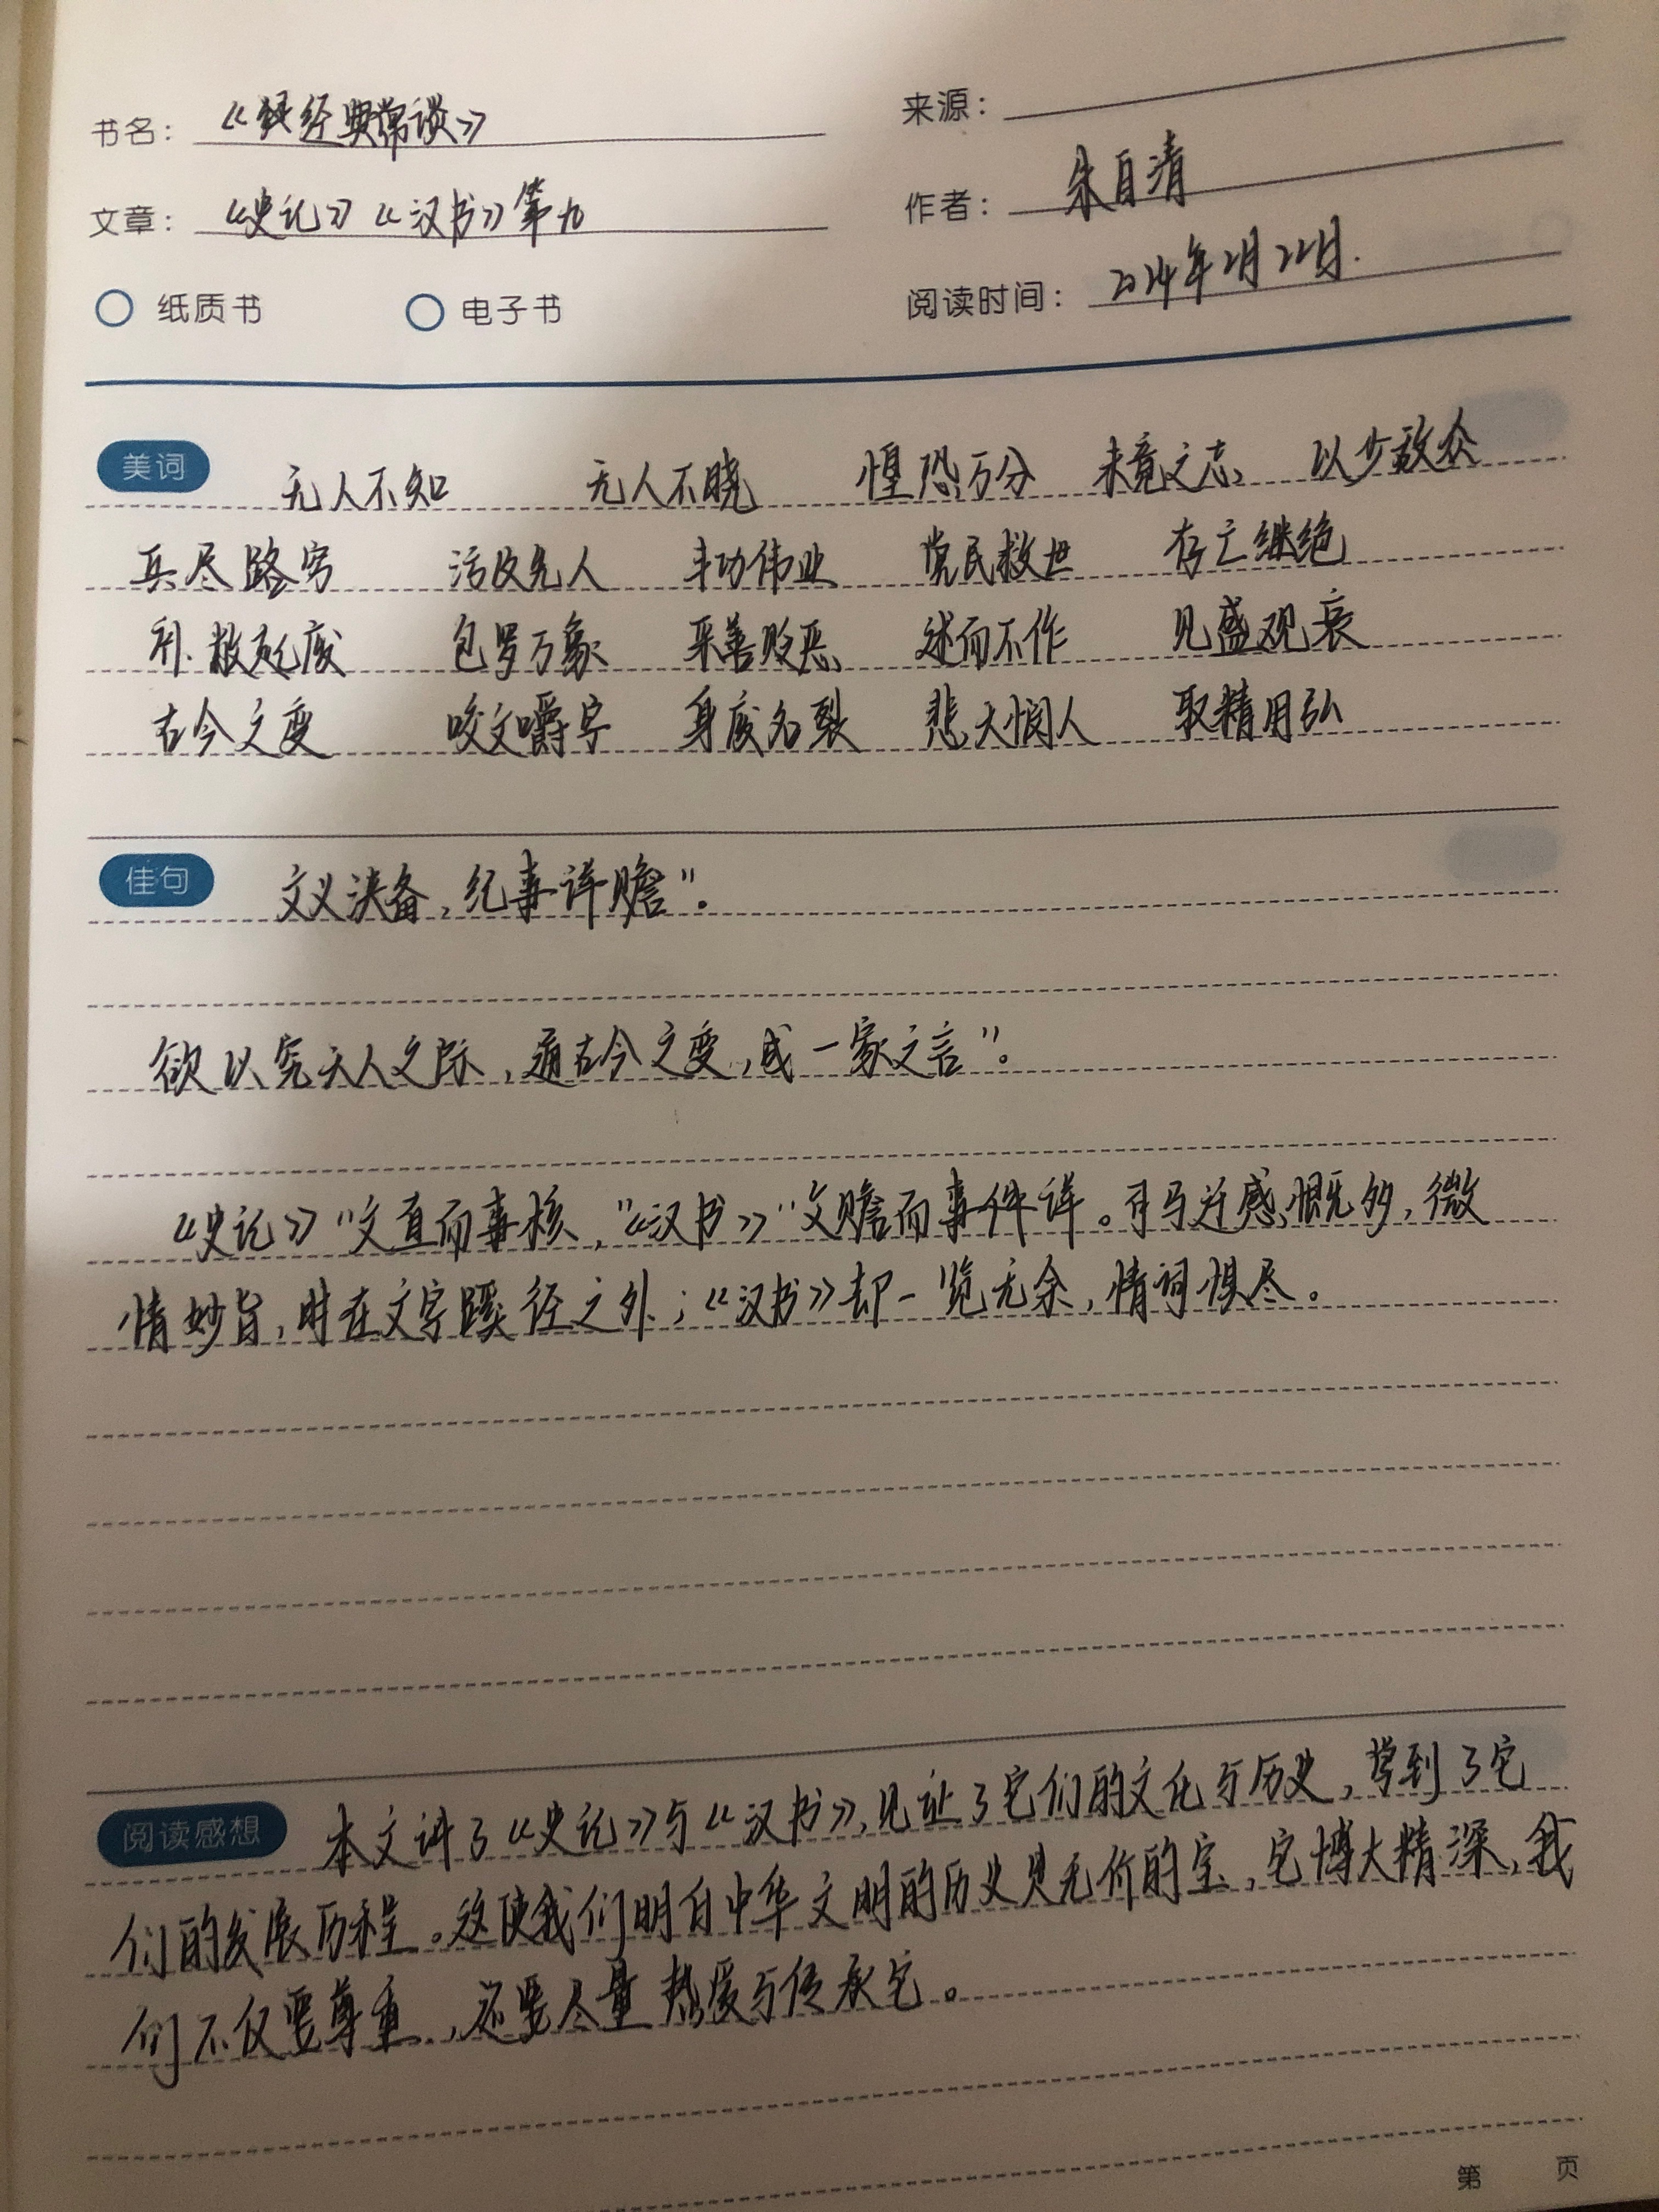 书名： 《经典常谈》
来源：
文章： 《史记》《汉书》第九
作者： 朱自清
纸质书 电子书
阅读时间： 2024年2月22日.
美词 无人不知 无人不晓 惶恐万分 未竟之志 以少敌众
兵尽路穷 污及先人 丰功伟业 党民救世 存亡继绝
补敝起废 包罗万象 采善贬恶 述而不作 见盛观衰
古今之变 咬文嚼字 身废名裂 悲天悯人 取精用弘
佳句 文义浃备，纪事详赡”。
欲以究天人之际，通古今之变，成一家之言”。
《史记》“文直而事核，”《汉书》“文赡而事件详。司马迁感慨多，微
情妙旨，时在文字蹊径之外；《汉书》却一览无余，情词俱尽。
阅读感想 本文讲了《史记》与《汉书》，见证了它们的文化与历史，学到了它
们的发展历程。这使我们明白中华文明的历史是无价的宝，它博大精深，我
们不仅要尊重，还要尽量热爱与传承它。
第 页